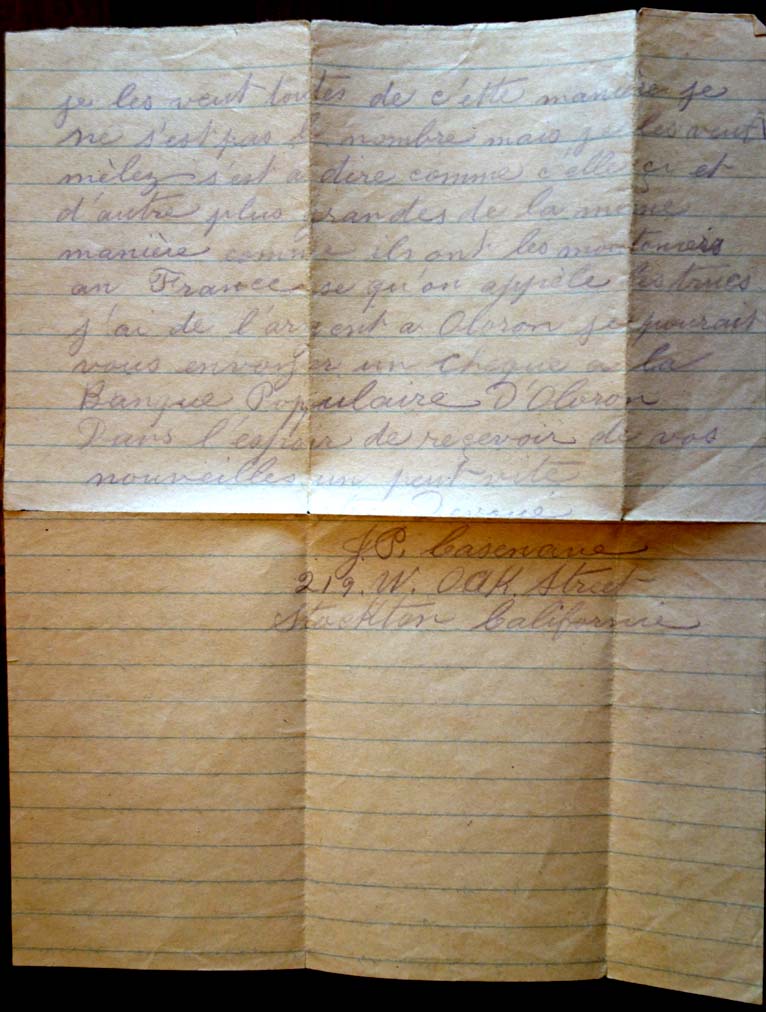 je les veut toutes de c'ette manière je
ne s'est pas le nombre mais je les veut
mèlez s'est a dire comme c'elle çi et
d'autre plus grandes de la même
manière comme ils ont les moutoniers
an France se qu'on appèle les trucs
j'ai de l'argent a Oloron je pourait
vous envoyer un cheque a la
Banque Populaire D'Oloron
Dans l'espoir de reçevoir de vos
nouveilles un peut vite
J.P. Casenave
219. W. OAK. Street
Stockton Californie